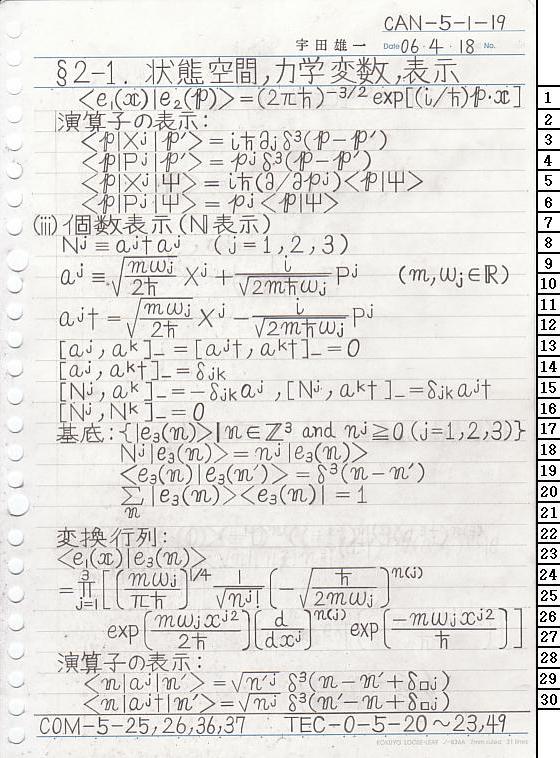 CAN-5-1-19
宇田雄一 Date 06・4・18 No.
§2-1. 状態空間,力学変数,表示
<e₁(x)|e₂(p)>=(2πħ)^{-3/2} exp[(i/ħ)p·x]
演算子の表示:
<p|X^j|p'>=iħ∂_j δ³(p-p')
<p|P^j|p'>=p^j δ³(p-p')
<p|X^j|Ψ>=iħ(∂/∂p^j)<p|Ψ>
<p|P^j|Ψ>=p^j<p|Ψ>
(iii)個数表示(N表示)
N^j≡a^j†a^j (j=1,2,3)
a^j≡√(mω_j/2ħ) X^j + i/√(2mħω_j) P^j (m,ω_j∈ℝ)
a^j†=√(mω_j/2ħ) X^j - i/√(2mħω_j) P^j
[a^j,a^k]_-=[a^j†,a^k†]_-=0
[a^j,a^k†]_-=δ_jk
[N^j,a^k]_-=-δ_jk a^j,[N^j,a^k†]_-=δ_jk a^j†
[N^j,N^k]_-=0
基底:{|e₃(n)>|n∈ℤ³ and n^j≧0(j=1,2,3)}
N^j|e₃(n)>=n^j|e₃(n)>
<e₃(n)|e₃(n')>=δ³(n-n')
∑_n |e₃(n)><e₃(n)|=1
変換行列:
<e₁(x)|e₃(n)>
=∏_{j=1}^{3}[(mω_j/πħ)^{1/4} 1/√(n^j!) (-√(ħ/2mω_j))^{n(j)}
exp(mω_j x^{j2}/2ħ)(d/dx^j)^{n(j)} exp(-mω_j x^{j2}/ħ)]
演算子の表示:
<n|a^j|n'>=√n'^j δ³(n-n'+δ_□j)
<n|a^j†|n'>=√n^j δ³(n'-n+δ_□j)
COM-5-25,26,36,37 TEC-0-5-20~23,49
KOKUYO LOOSE-LEAF ノ-836A 7mm ruled 31 lines
1
2
3
4
5
6
7
8
9
10
11
12
13
14
15
16
17
18
19
20
21
22
23
24
25
26
27
28
29
30